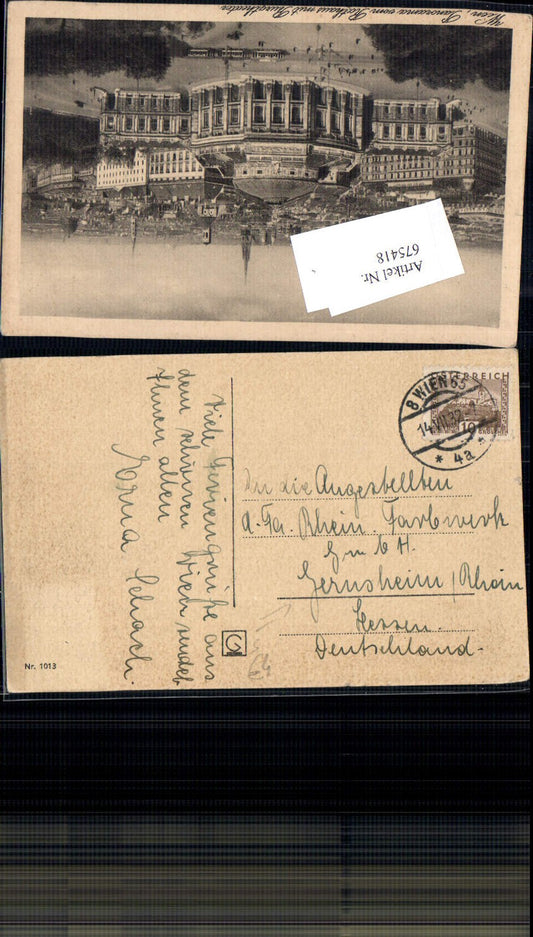 Wien, Panorama vom Rathaus mit Burgtheater
Artikel Nr.
675418
ÖSTERREICH
8 WIEN 65
14.VII.32
* 4a *
10
GROSCHEN
Viele Feriengrüße aus
dem schönen Wien sendet
Ihnen allen
Erna Schach.
An die Angestellten
d. Fa. Rhein. Farbwerk
G.m.b.H.
Gernsheim/Rhein
Hessen.
Deutschland.
Nr. 1013